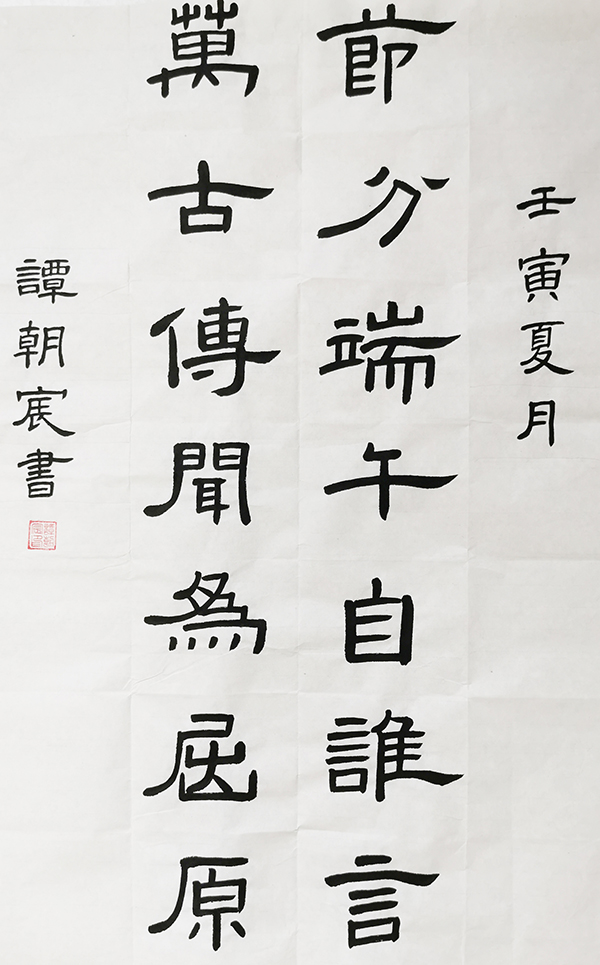 壬寅夏月
節分端午自誰言
萬古傳聞為屈原
譚朝宸書